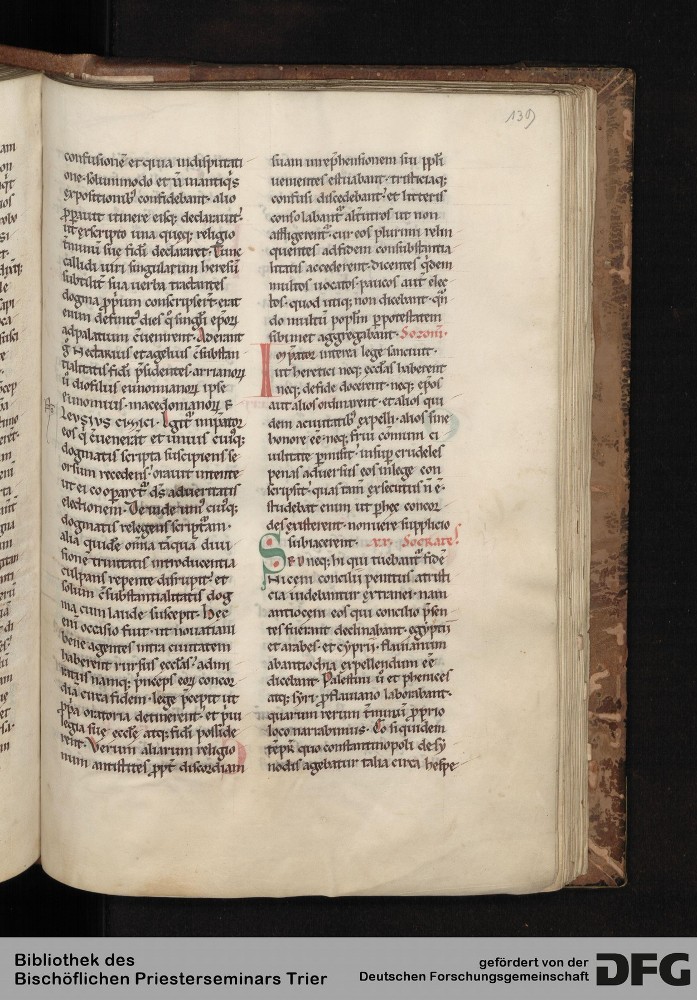 139
confusionē et quia indisputati
one solummodo et ñ in antiqis
expositionib; confidebant. alio
ppauit itinere eisq; declarauit.
ut exscripto una queq; religio
tminū sue fidi declararet. Tunc
callidi uiri singularum heresū
subtilit sua uerba tractantes
dogma pprium conscripsert. erat
enim definit dies q singli epoꝝ
ad palatium cuenirent. Aderant
g Nectarius et agelius csubstan
tialitatis fidi psidentes. arrianoꝝ
ū diofilus. eunomianoꝝ ipse
eunomius. macedonianoꝝ
Leusius cizici. Igit impator
eos q cuenerāt et unius cuiq;
dogmatis scripta suscipiens se
orsum recedens. orauit intente
ut ei coopararet ds ad ueritatis
electionem. Deinde uni cuiq;
dogmatis relegens scriptam.
alia quide omīa tāqua diui
sione trinitatis introducentia
culpans repente disrupit. et
solum csubstantialitatis dog
ma cum laude suscepit. hec
eni occasio fuit. ut nouatiani
bene agentes intra ciuitatem
haberent rursus ecclas. admi
ratus namq; pnceps eoꝝ concor
diā circa fidem. lege pcepit ut
ppa oratoria detinerent. et piui
legia sue eccle atq; fidi posside
rent. Verum aliarum religio
num antistites ppt discordiam
suam in rephensionem sui ppli
uenientes estuabant. tristiciaq;
confusi discedebant. et litteris
consolabant altutros ut non
affligerent. cur eos plurimi relin
quentes ad fidem consubstantia
litatis accederent. dicentes qdem
multos uocatos. paucos aut elec
tos. quod utiq; non dicebant. qn
do multū poplm p potestatem
sibimet aggregabant. Sozom.
Impator interea lege sanciuit.
ut heretici neq; ecclas haberent
neq; de fide docerent. neq; epos
aut alios ordinarent. et alios qui
dem a ciuitatib; expelli. alios sine
honore ee. neq; frui comuni ci
uilitate pmisit. insup crudeles
penas aduersus eos in lege con
scripsit. quas tam exsecutus ñ ē.
studebat enim ut phee concor
des existerent. non uere supplicio
subiacerent. xx. Socrates
Sed neq; hi qui tuebant fidē
Niceni concilii penitus a tristi
cia uidebantur extranei. nam
antiocem eos qui concilio psen
tes fuerant declinabant. egyptii
et arabes. et cyprii. flauianum
ab antiochia expellendum eē
dicebant. Palestini ū et phenices
atq; syri p flauiano laborabant.
quarum rerum tminū pprio
loco narabimus. Eo siquidem
tēpr quo constantinopoli de sy
nodis agebatur talia circa hespe
Bibliothek des
Bischöflichen Priesterseminars Trier
gefördert von der
Deutschen Forschungsgemeinschaft
DFG